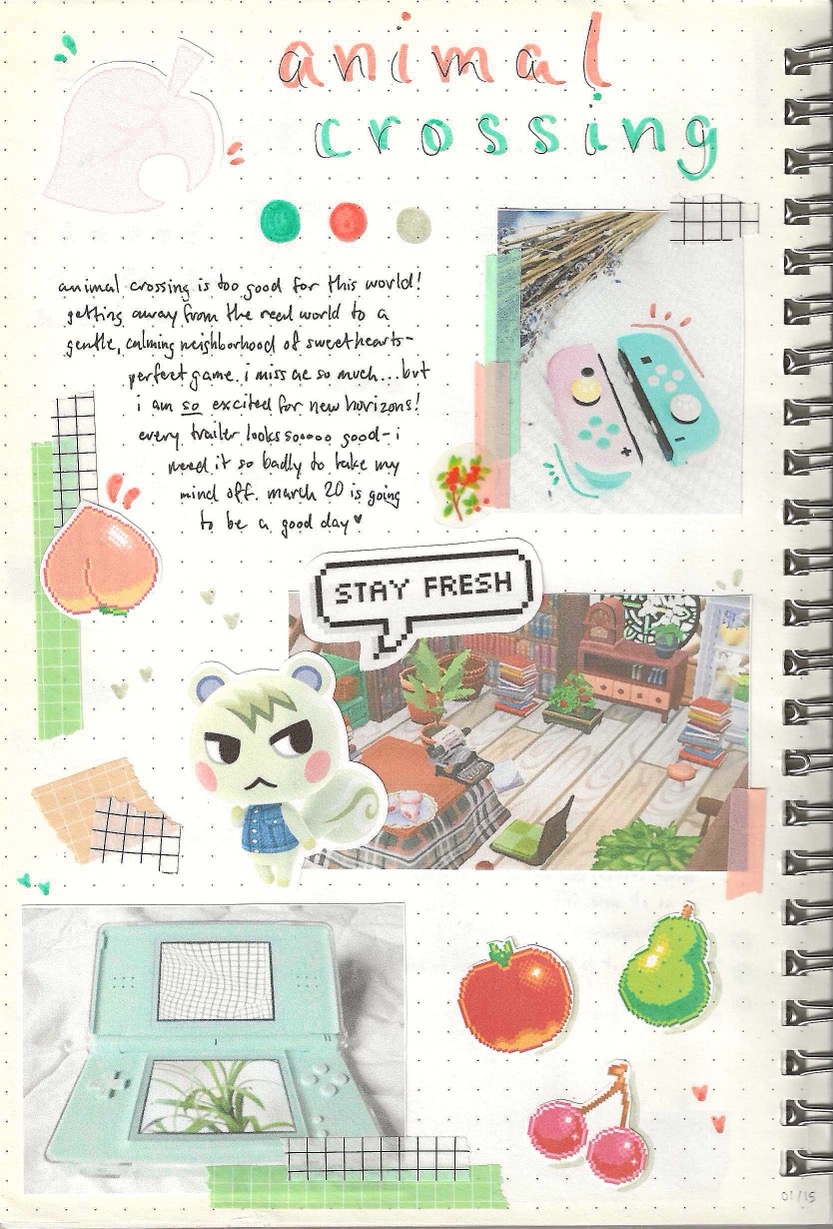 animal
crossing
animal crossing is too good for this world!
getting away from the real world to a
gentle, calming neighborhood of sweethearts-
perfect game. i miss ac so much...but
i am so excited for new horizons!
every trailer looks sooooo good - i
need it so badly to take my
mind off. march 20 is going
to be a good day♥
STAY FRESH
01/15